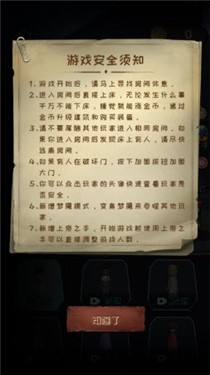 游戏安全须知
1、游戏开始后，请马上寻找房间休息。
2、进入房间后直接上床，无论发生什么事
千万不能下床，睡觉就能涨金币，通过
金币升级建筑和购买装备。
3、请不要尾随其他玩家进入相同房间，如
果你进入房间后发现床上有人，请尽快
逃离房间。
4、如果猎人在破坏门，按下加固按钮加固
大门。
5、你可以点击玩家的头像快速查看玩家是
否安全。
6、新增梦魇模式，变身梦魇来夺催其他玩
家。
7、新增上帝之手，开始游戏前使用上帝之
手可以直接调整游戏人数。
知道了